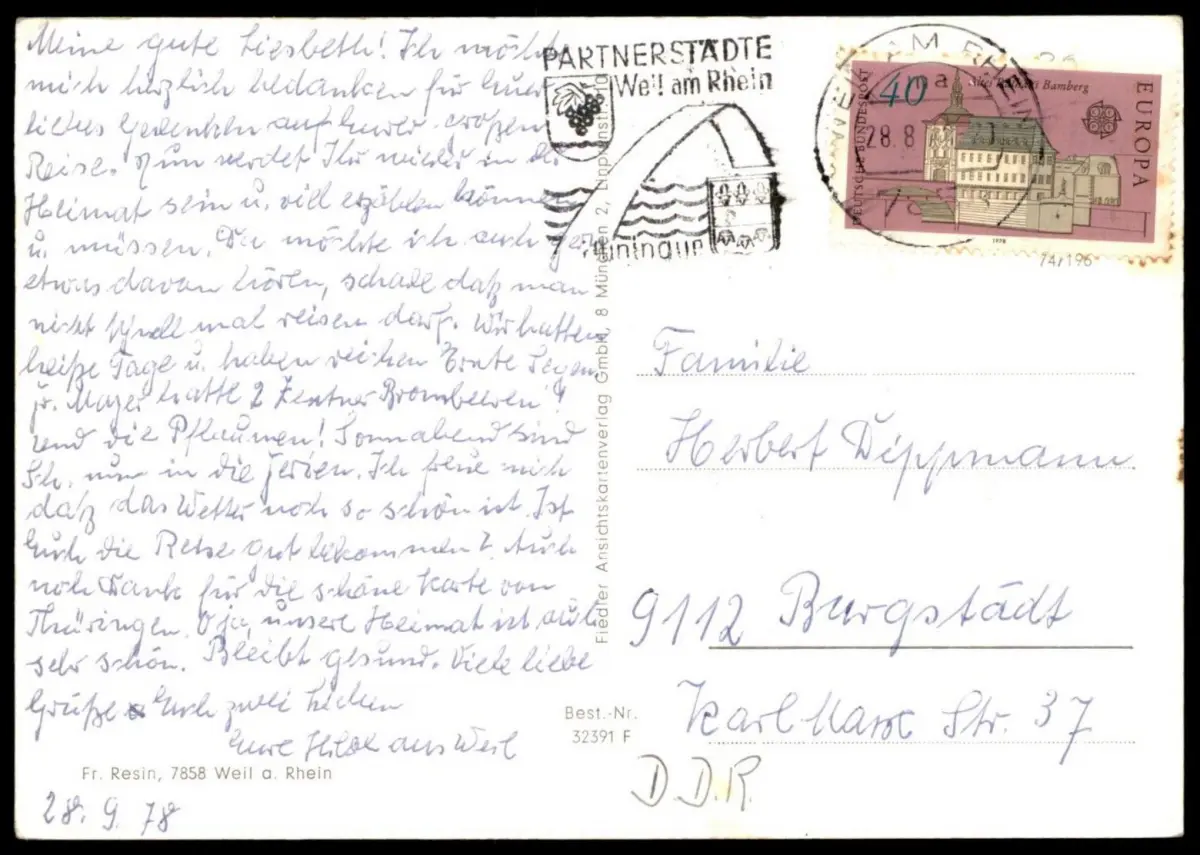 Meine gute Liesbeth! Ich möchte
mich herzlich bedanken für Euer
liebes Gedenken auf Eurer großen
Reise. Nun werdet Ihr wieder in der
Heimat sein u. viel erzählen können
u. müssen. Da möchte ich auch gern
etwas davon hören, schade daß man
nicht schnell mal reisen darf. Wir hatten
heiße Tage u. haben reichen Ernte Segen.
Fr. Mayer hatte 2 Zentner Brombeeren!
und die Pflaumen! Sonnabend sind
Sch. nun in die Ferien. Ich freue mich
daß das Wetter noch so schön ist. Ist
Euch die Reise gut bekommen? Auch
noch Dank für die schöne Karte von
Thüringen. O ja, unsere Heimat ist auch
sehr schön. Bleibt gesund. Viele liebe
Grüße Euch zwei Lieben
Eure Hilde aus Weil
Fr. Resin, 7858 Weil a. Rhein
28. 9. 78
PARTNERSTÄDTE
Weil am Rhein
Huningue
WEIL AM RHEIN
a
28.8
DEUTSCHE BUNDESPOST
40
Altes Rathaus Bamberg
EUROPA
1978
74/196
Fiedler Ansichtskartenverlag GmbH, 8 München 2, Linprunstraße
Familie
Herbert Dippmann
9112 Burgstädt
Karl Marx Str. 37
D.D.R.
Best.-Nr.
32391 F